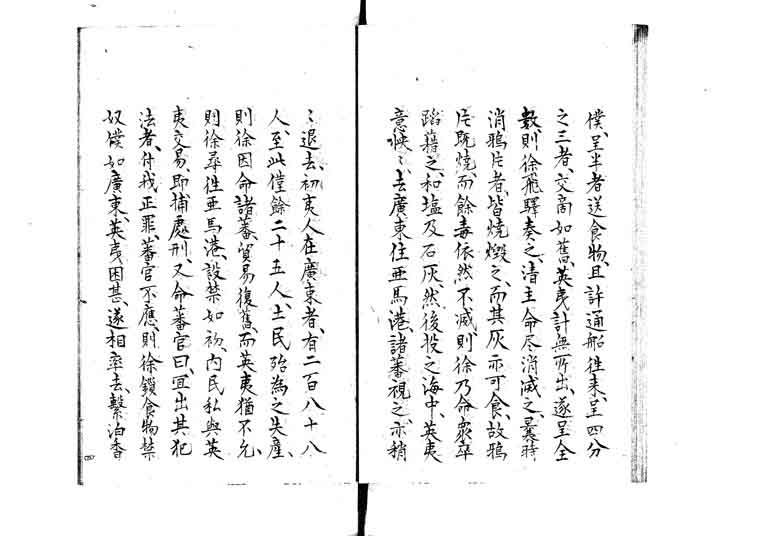 僕、呈半者送食物、且許通船徃来、呈四分
之三者、交商如舊、英夷計無所出、遂呈全
數、則徐飛驛奏之、清主命尽消滅之、曩時
消鴉片者、皆燒燬之、而其灰亦可食、故鴉
片既燒、而餘毒依然不滅、則徐乃命衆卒
蹈藉之、和塩及石灰、然後投之海中、英夷
意怏〻去廣東住亜馬港、諸蕃視之、亦稍
〻退去、初夷人在廣東者、有二百八十八
人、至此僅餘二十五人、土民殆為之失産、
則徐因命諸蕃、貿易復舊、而英夷猶不允、
則徐尋徃亜馬港、設禁如初、内民私與英
夷交易、即捕處刑、又命蕃官曰、宜出其犯
法者、付我正罪、蕃官不應、則徐鎖食物禁
奴僕如廣東、英夷困甚、遂相率去、繫泊香